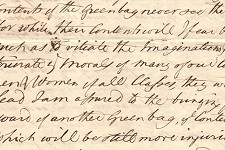 contents of the Green bag never see the
for while their contents will I fear b
such as to vitiate the Imaginations
morals of many of our
Women of all Classes, they w
lead I am assured to the
of another Green bag, of Conten
which will be still more injurio